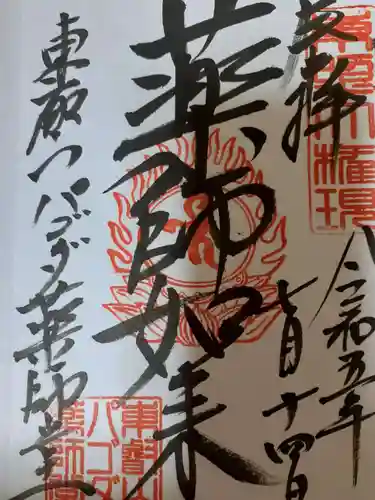 奉拝
東照大権現
令和五年
七月十四日
薬師如来
東叡山パゴダ薬師堂
東叡山
パゴダ
薬師堂